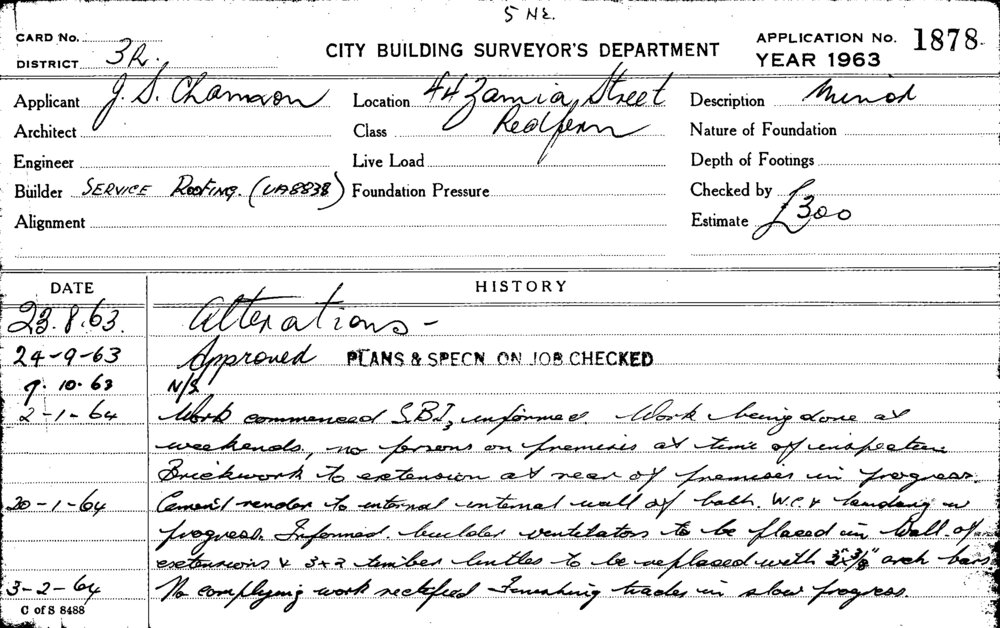 5 NE.
CARD No.
DISTRICT 3R.
CITY BUILDING SURVEYOR'S DEPARTMENT
APPLICATION No. 1878
YEAR 1963
Applicant J. S. Location 44 Zamia Street Description Minor
Architect Class Redfern Nature of Foundation
Engineer Live Load Depth of Footings
Builder SERVICE ROOFING. (UA8838) Foundation Pressure Checked by
Alignment Estimate £300
DATE HISTORY
23.8.63. Alterations -
24-9-63 Approved PLANS & SPECN. ON JOB CHECKED
9.10.63 N/S
2-1-64 Work commenced S.B.I. informed. Work being done at
weekends, no persons on premises at time of inspection
Brickwork to extension at rear of premises in progress.
20-1-64 Cement render to internal internal wall of bath. W.C. & landing in
progress. Informed builder ventilators to be placed in Wall of
extensions & 3x2 timber lintles to be replaced with 3"x3/8" arch bars
3-2-64 No complying work rectified Finishing trades in slow progress.
C of S 8488